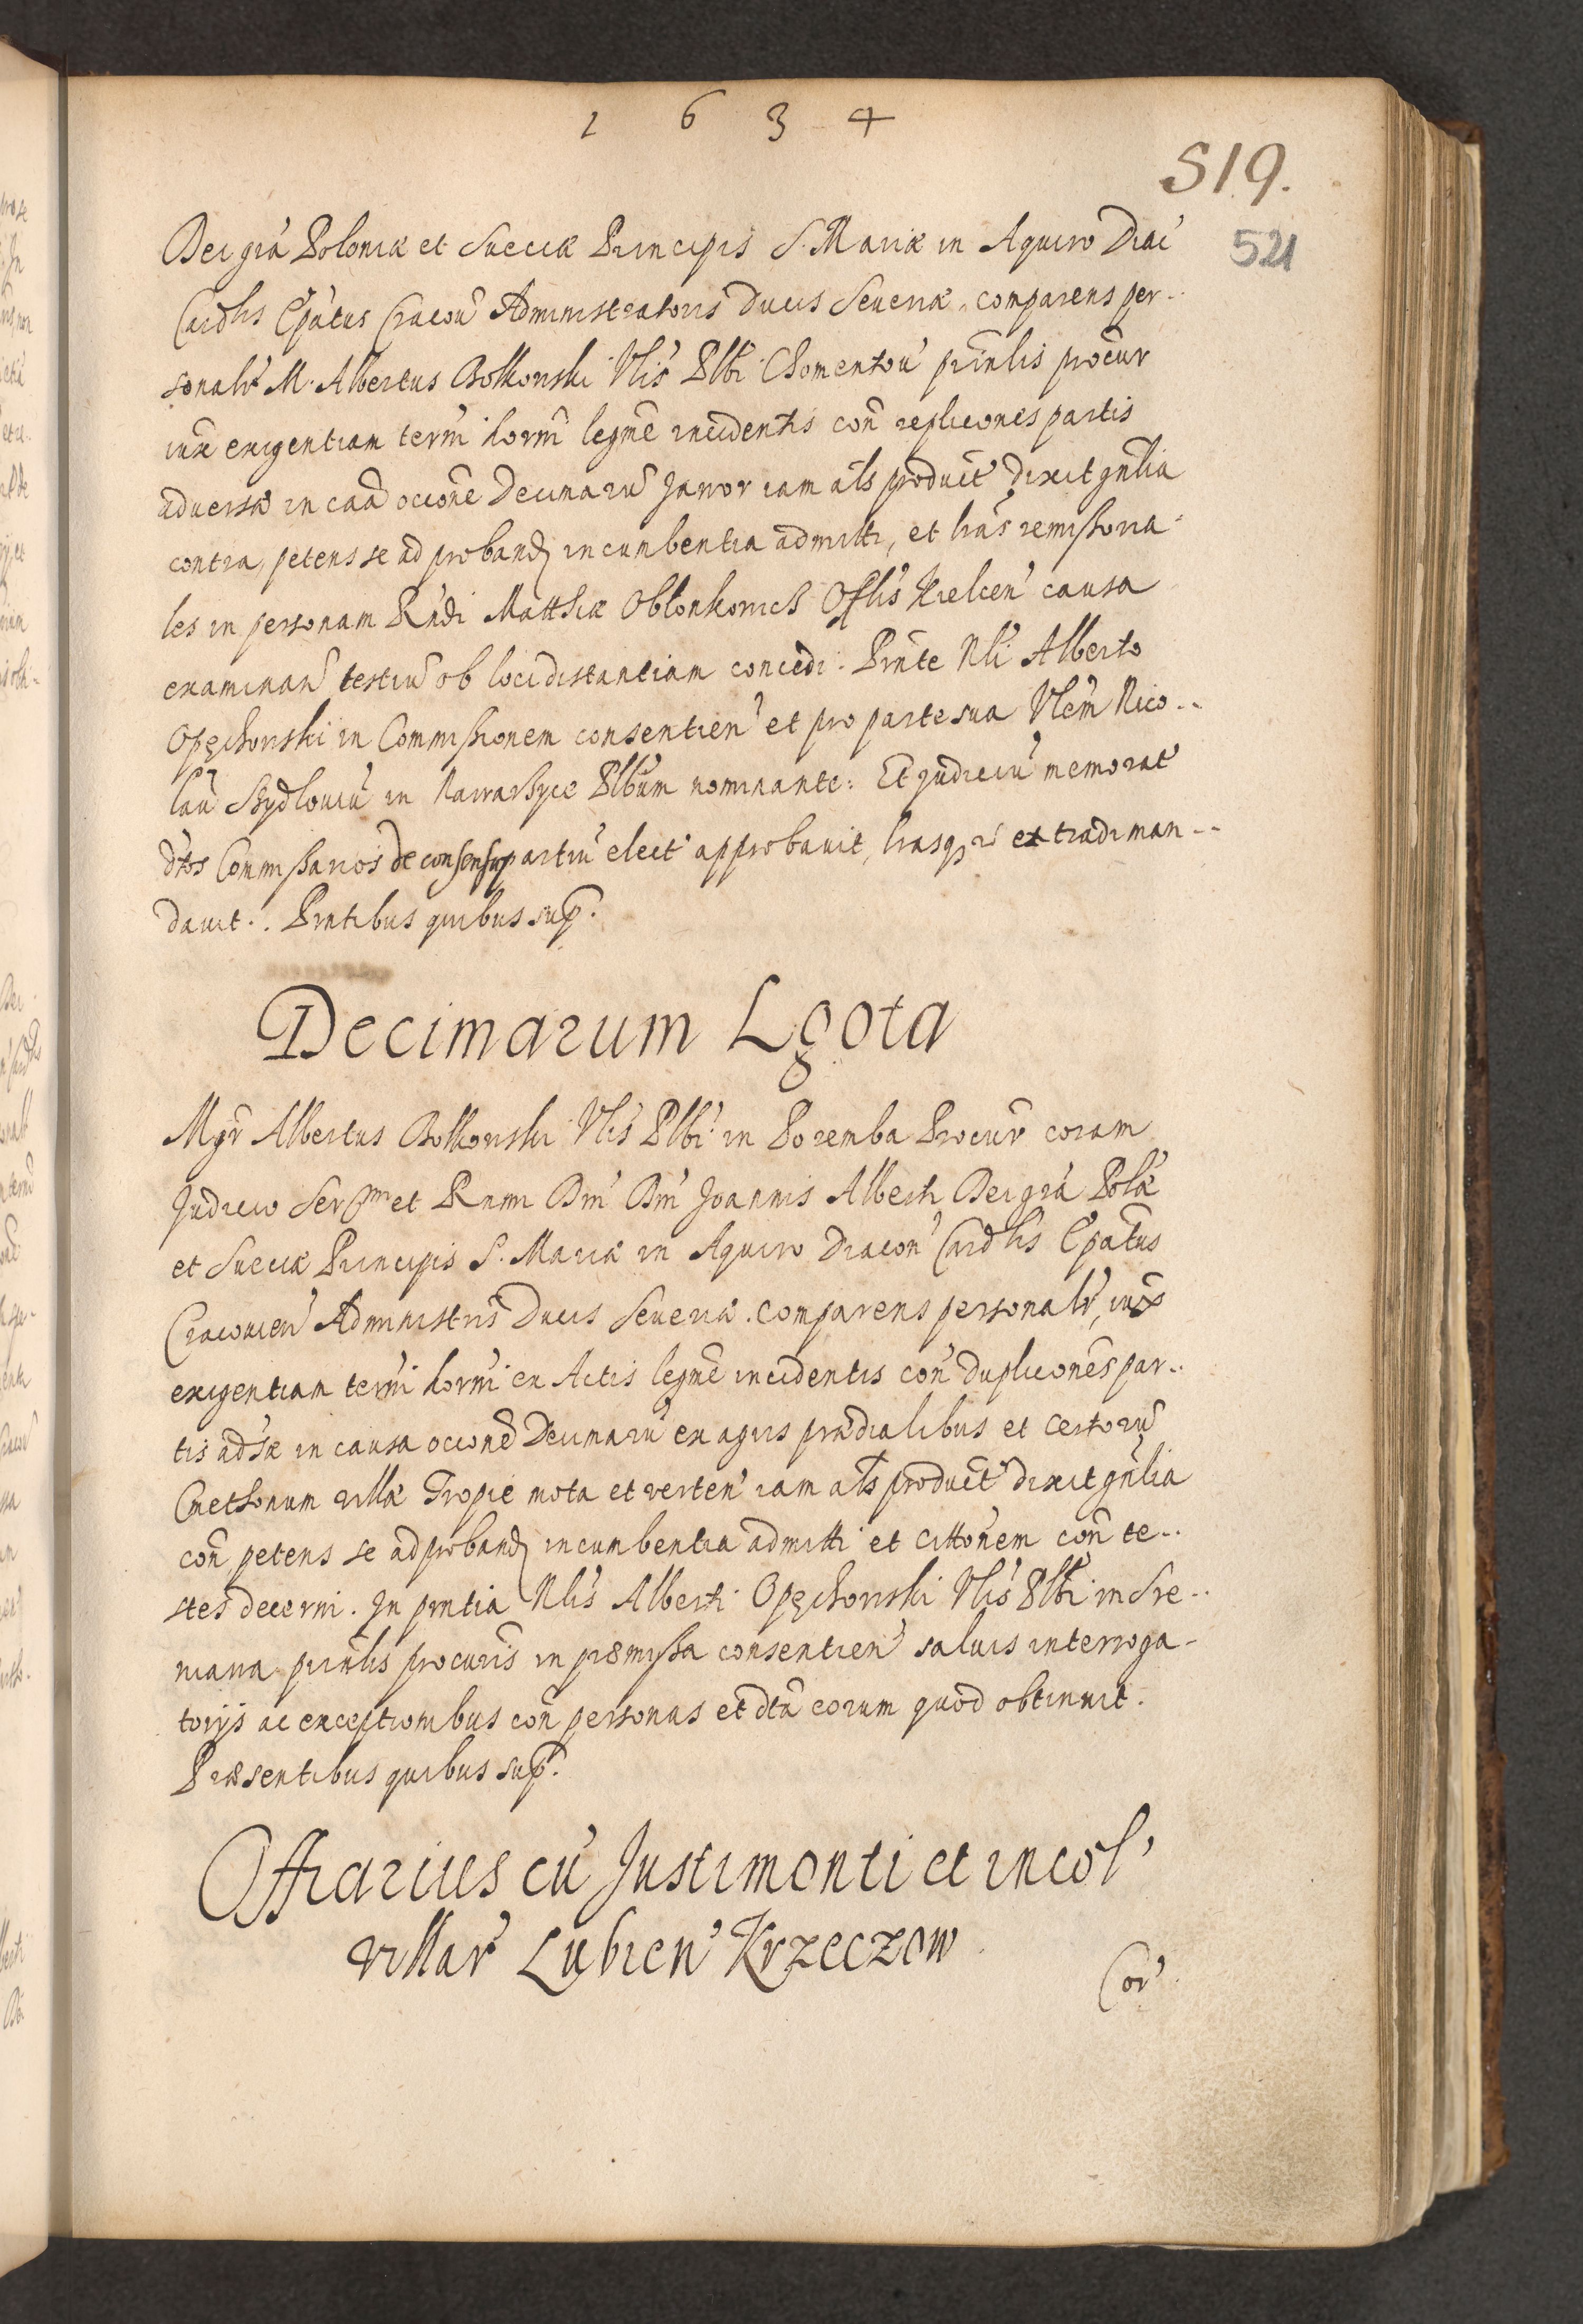 1 6 3 4
519.
521
Dei grā Poloniæ et Sueciæ Principis S. Mariæ in Aquiro Diac̄
Cardlis Ep̄atus Cracou̅ Administratoris Ducis Seueriæ, comparens per-
sonalr̄ M. Albertus Bolkonski Vlis̄ Plbī Chomentou̅ prīnlis procur̄
iux̄ exigentiam term̄i horn̄i legm̄e incidentis con̄ replicōnes partis
aduersæ in caa̅ occōne Decimaru̅ Jawor iam al̄s product̄ dixit gn̄lia
contra, petens se ad proband̄ incumbentia admitti, et lrās remissoria-
les in personam Rn̄di Matthiæ Obłonkowicz Offlis̄ Kielcen̄ causa
examinan̄ testiu̅ ob loci distantiam concedi. Prn̄te Nli̅ Alberto
Opęchowski in Commissionem consentien̄ et pro parte sua Vlem̄ Nico-
lau̅ Szydlouiu̅ in Nawarzyce Plbu̅m nominante: Et Judiciu̅ memorat̄
dt̄os Commissarios de consensu partiu̅ elect̄ approbauit, lrasq̄ ex tradi man-
dauit. Prn̄tibus quibus sup̄.
Decimarum Lgota
Mgr̄ Albertus Bolkonski Vlis̄ Plbī in Poremba Procur̄ coram
Judicio Ser̄mi et Rn̄mi Dn̄i Dn̄i Joannis Alberti Dei grā Polǣ
et Sueciæ Principis S. Mariæ in Aquiro Diacon̄ Cardlis Ep̄atus
Cracouien̄ Administris̄ Ducis Seueriæ. Comparens personalr̄, iux̄
exigentiam term̄i horn̄i ex Actis legm̄e incidentis con̄ duplicōnes par-
tis adsǣ in causa occōne Decimaru̅ ex agris prædialibus et certoru̅
Cmethonum villæ Tropie mota et verten̄ iam al̄s product̄ dixit gn̄lia
con̄ petens se ad proband̄ incumbentia admitti et cittōnem con̄ te-
stes decerni. In prn̄tia Nlis̄ Alberti Opęchowski Vlis̄ Plbī in Sre-
niawa prīnlis procuris̄ in præmissa consentien̄ saluis interroga-
torijs ac exceptionibus con̄ personas et dt̄a eorum quod obtinuit.
Præsentibus quibus sup̄.
Offiarius cu̅ Justimonti et incol̄
villar̄ Lubien̄ Krzeczow
Cor̄